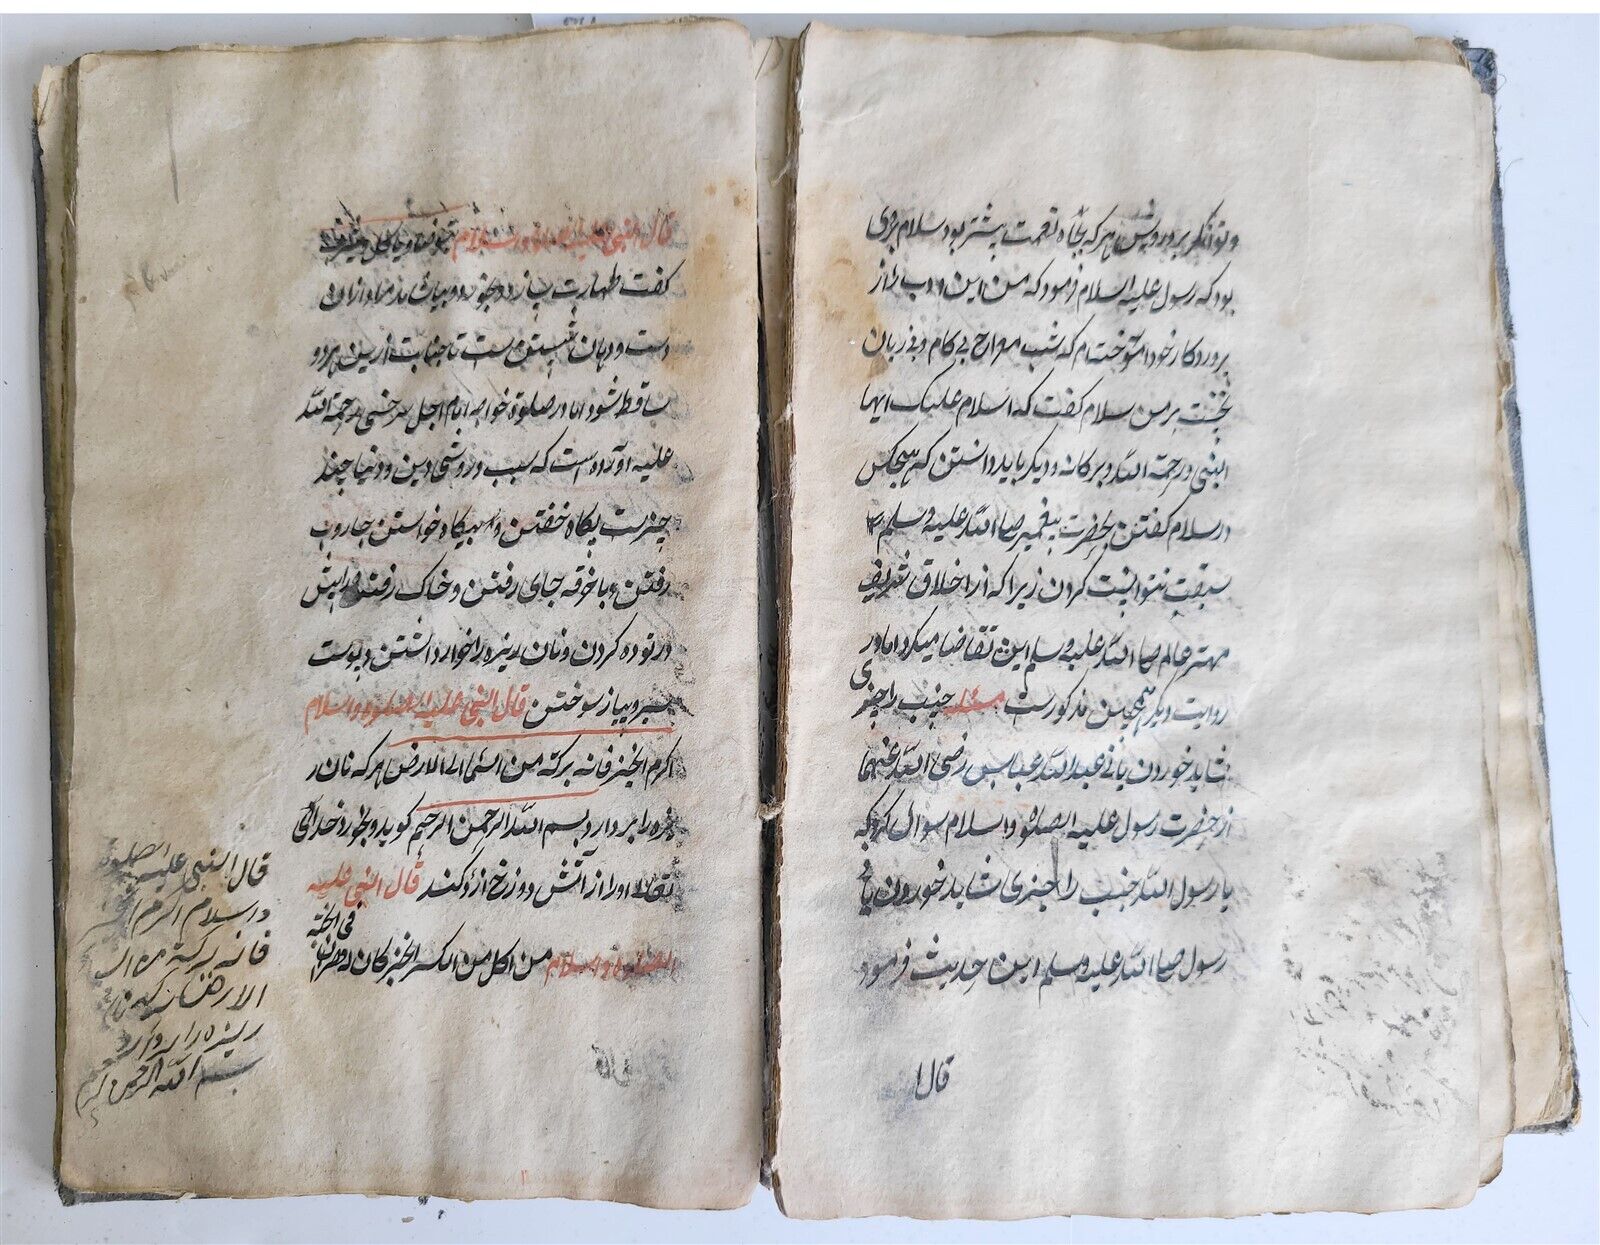 و توانگر بر درویش هر که بجاه نعمت بیشتر بود سلام بروی
بود که رسول علیه السلام فرمود که من این ادب از
پروردکار خود آموختم که شب معراج بی کام و بی زبان
نخست بر من سلام کفت که السلام علیک ایها
النبی و رحمة الله و برکاته و دیکر باید دانستن که هیچکس
در سلام کفتن بحضرت پیغمبر صلی الله علیه و سلم
سبقت نتوانست کردن زیرا که از اخلاق شریف
مهتر عالم صلی الله علیه و سلم این تقاضا میکرد اما در
روایت دیکر همچنین مذکورست مسئله جنب را چیزی
شاید خوردن یا نی عبد الله عباس رضی الله عنهما
از حضرت رسول علیه الصلوة و السلام سوال کرد که
یا رسول الله جنب را چیزی شاید خوردن یا نی
رسول صلی الله علیه وسلم این حدیث فرمود
قال
قال النبی علیه الصلوة و السلام
کفت طهارت بسازد و بخورد و بیاشامد مراد ازان
دست و دهان شستن است تا جنابت ازین هر دو
ساقط شود اما در صلوة خواجه امام اجل سرخسی رحمة الله
علیه آورده است که سبب درویشی دین و دنیا چند
چیزست پکاه خفتن و بیکاه خواستن جاروب
رفتن و با خرقه جای رفتن و خاک رفته
در توده کردن و نان ریزه را خوار داشتن و پوست
سیر و پیاز سوختن قال النبی علیه الصلوة و السلام
اکرم الخبز فانه برکة من السماء الی الارض هر که نان ر
یزه را بردارد و بسم الله الرحمن الرحیم کوید و بخورد خدای
تعالی او را از آتش دوزخ آزاد کند قال النبی علیه
الصلوة و السلام من اکل من الکسر الخبز کان له
فی الجنة
قال النبی علیه الصلوة
و السلام اکرم الخبز
فانه برکة من ال
الارض هر که نان
ریزه را بردارد
بسم الله الرحمن الرحیم